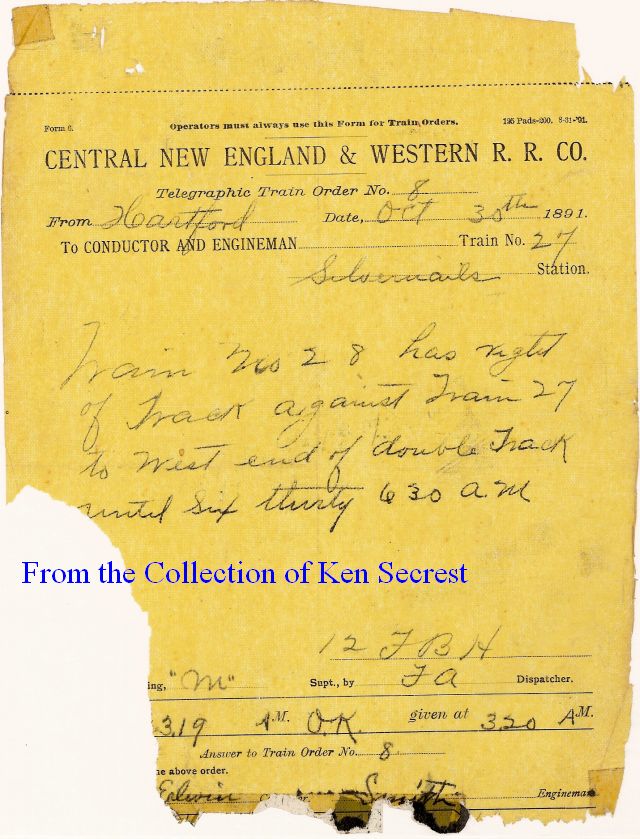 Form 6. Operators must always use this Form for Train Orders. 125 Pads-200. 8-31-'91.
CENTRAL NEW ENGLAND & WESTERN R. R. CO.
Telegraphic Train Order No. 8
From Hartford Date, Oct 30th 1891.
To CONDUCTOR AND ENGINEMAN Train No. 27
Silvernails Station.
Train No 28 has right
of Track against Train 27
to West end of double Track
until Six thirty 630 A.M
From the Collection of Ken Secrest
12 F B H
ing, "M" Supt., by FA Dispatcher.
3.19 A M. O.K. given at 3.20 A M.
Answer to Train Order No. 8
he above order.
Edwin Smith Engineman